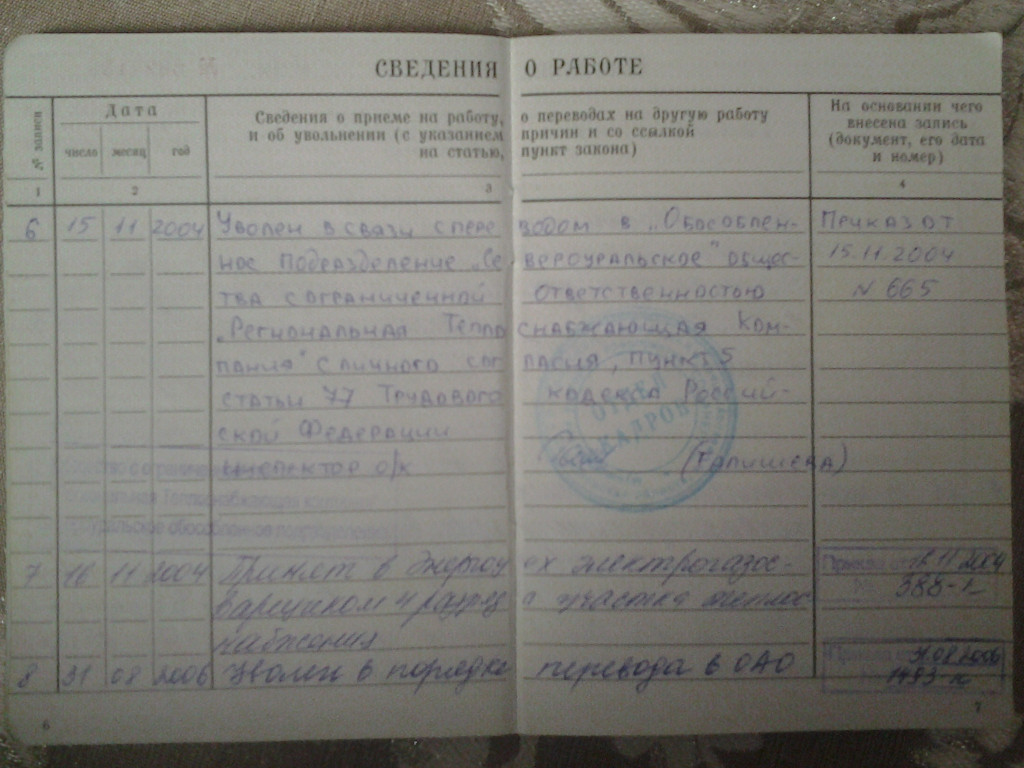 СВЕДЕНИЯ О РАБОТЕ
№ записи
Дата
число месяц год
Сведения о приеме на работу, о переводах на другую работу
и об увольнении (с указанием причин и со ссылкой
на статью, пункт закона)
На основании чего
внесена запись
(документ, его дата
и номер)
1 2 3 4
6 15 11 2004 Уволен в связи с пере водом в „Обособлен- Приказ от
ное подразделение „Се вероуральское" общес- 15.11.2004
тва с ограниченной ответственностью N 665
„Региональная Тепло снабжающая Ком-
пания" с личного сог ласия, пункт 5
статьи 77 Трудового кодекса Россий-
ской Федерации
Инспектор о/к (Галишева)
ОТДЕЛ
КАДРОВ
7 16 11 2004 Принят в Энергоц ех электрогазос- Приказ от 16.11.2004
варщиком 4 разряд а участка теплос № 388-к
набжения
8 31 08 2006 Уволен в порядке перевода в ОАО Приказ 31.08.2006
1493-к
6 7